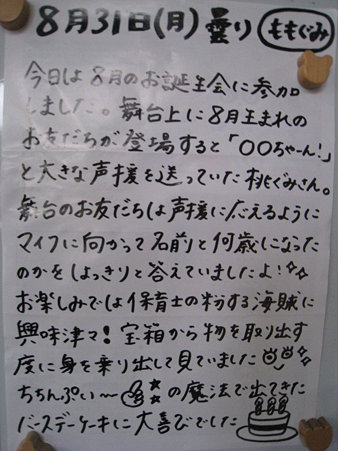 8月31日(月) 曇り ももぐみ
今日は8月のお誕生会に参加
しました。舞台上に8月生まれの
お友だちが登場すると「〇〇ちゃーん!」
と大きな声援を送っていた桃ぐみさん。
舞台のお友だちは声援に応えるように
マイクに向かって名前と何歳になった
のかをはっきりと答えていましたよ!
お楽しみでは保育士の粉する海賊に
興味津々!宝箱から物を取り出す
度に身を乗り出して見ていました
ちちんぷい〜の魔法で出てきた
バースデーケーキに大喜びでした